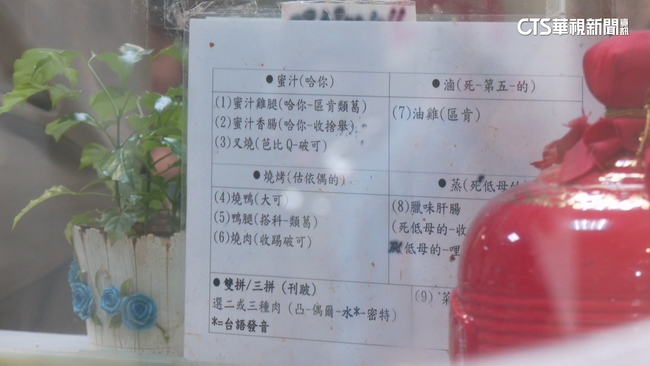 CTS華視新聞資訊
●蜜汁(哈你)
●滷(死-第五-的)
(1)蜜汁雞腿(哈你-區肯類葛)
(2)蜜汁香腸(哈你-收捨舉)
(3)叉燒(芭比Q-破可)
(7)油雞(區肯)
●燒烤(估依偶的)
●蒸(死低母的
(4)燒鴨(大可)
(5)鴨腿(搭科-類葛)
(6)燒肉(收踢破可)
(8)臘味肝腸
(死低母的-收
低母的-哩
●雙拼/三拼(刊跛)
選二或三種肉(凸-偶爾-水*-密特)
*=台語發音
(9)